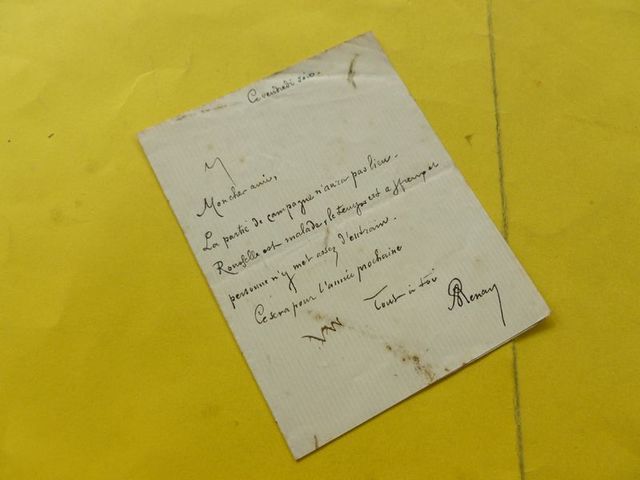 Ce vendredi soir.
Mon cher ami,
La partie de campagne n'aura pas lieu.
est malade, le temps est affreux et
personne n'y met assez d'entrain.
Ce sera pour l'année prochaine
Tout à toi